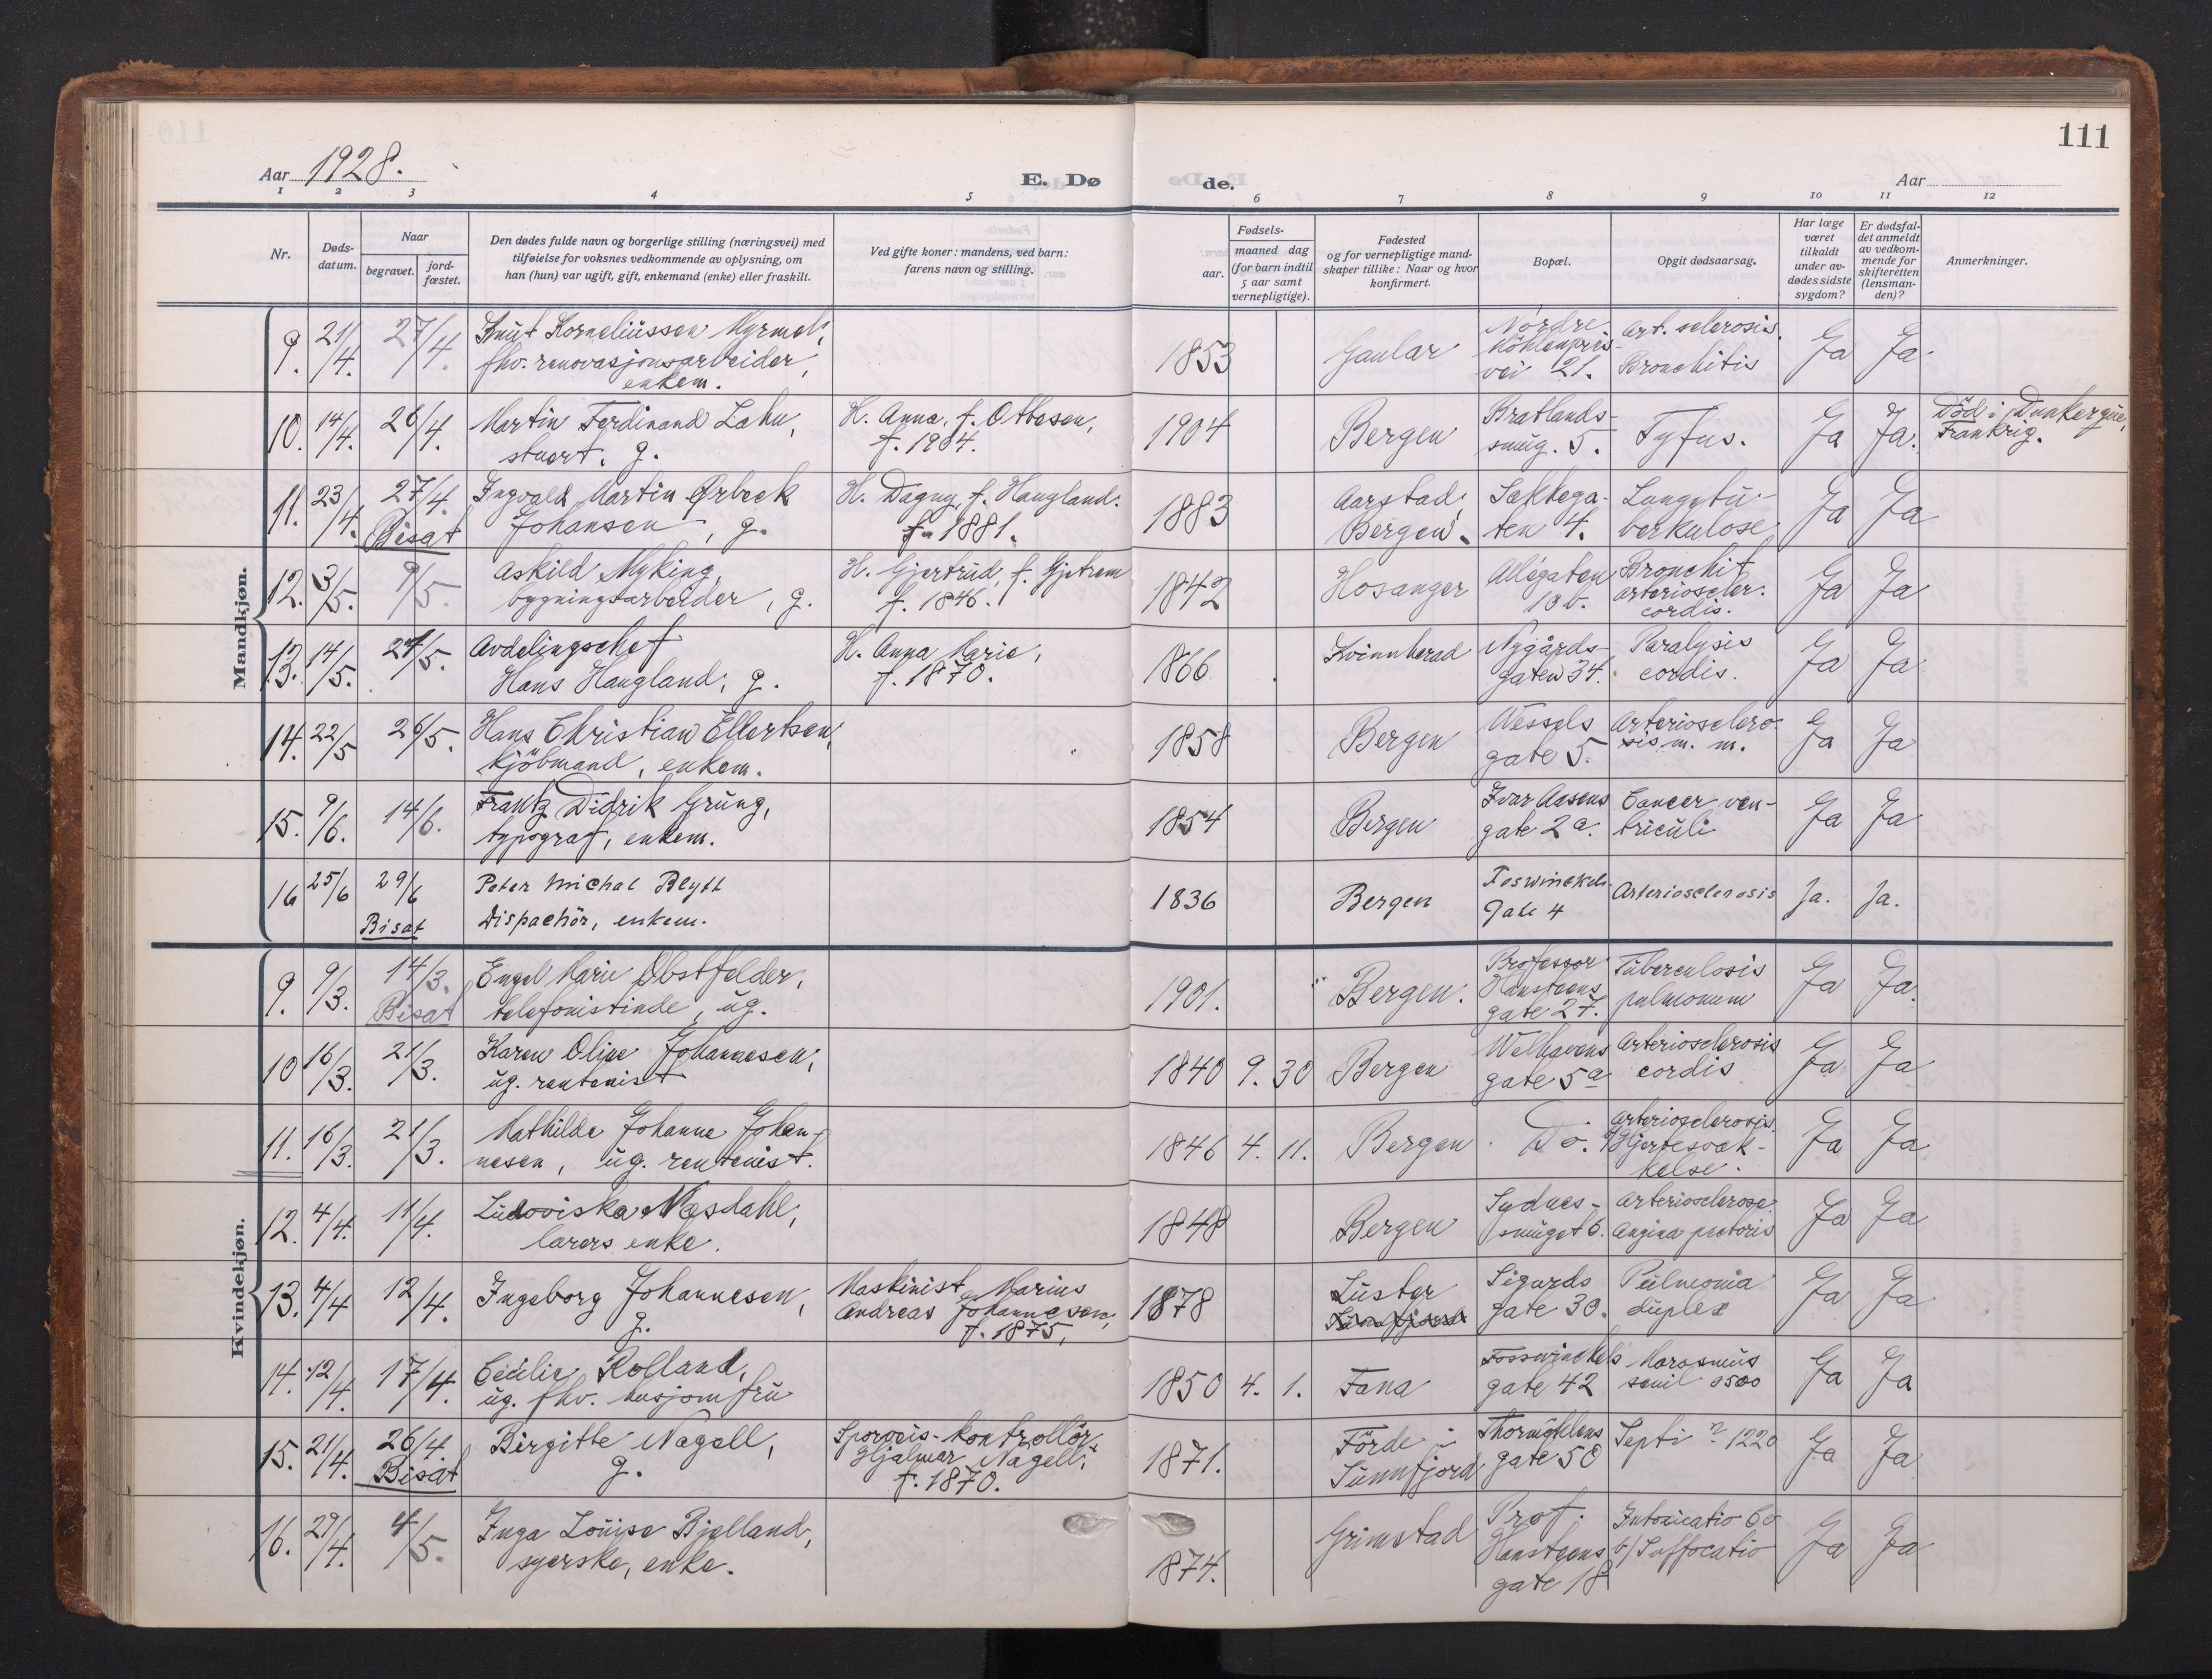 111
Aar 1928.
E. Døde.
Aar
1 2 3 4 5 6 7 8 9 10 11 12
Nr.
Døds-
datum.
Naar
begravet.
jord-
fæstet.
Den dødes fulde navn og borgerlige stilling (næringsvei) med
tilføielse for voksnes vedkommende av oplysning, om
han (hun) var ugift, gift, enkemand (enke) eller fraskilt.
Ved gifte koner: mandens, ved barn:
farens navn og stilling.
Fødsels-
aar.
maaned dag
(for barn indtil
5 aar samt
vernepligtige).
Fødested
og for vernepligtige mand-
skaper tillike: Naar og hvor
konfirmert.
Bopæl.
Opgit dødsaarsag.
Har læge
været
tilkaldt
under av-
dødes sidste
sygdom?
Er dødsfal-
det anmeldt
av vedkom-
mende for
skifteretten
(lensman-
den)?
Anmerkninger.
Mandkjøn.
9. 21/4. 27/4. Knut Korneliussen Myrmel,
fhv. renovasjonsarbeider,
enkem.
1853 Gaular
Nordre
Möhlenpris-
vei 21.
Art. sclerosis.
Bronchitis
Ja Ja
10. 14/4. 26/4. Martin Ferdinand Lahn,
stuert. g.
H. Anna, f. Ottesen,
f. 1904.
1904 Bergen
Bratlands-
smug. 5.
Tyfus.
Ja Ja.
Död i Dunkerque,
Frankrig.
11. 23/4. 27/4.
Bisat
Ingvald Martin Ørbeck
Johansen, g.
H. Dagny, f. Haugland.
f. 1881.
1883
Aarstad,
Bergen.
Sekkega-
ten 4.
Lungetu-
berkulose
Ja Ja
12. 3/5. 9/5. Askild Myking,
bygningsarbeider, g.
H. Gjertrud, f. Gjetrem
f. 1846.
1842 Hosanger
Allégaten
10 b.
Bronchit
arterioscler.
cordis.
Ja Ja
13. 14/5. 24/5. Avdelingschef
Hans Haugland, g.
H. Anna Marie,
f. 1870.
1866 Kvinnherad
Nygårds-
gaten 34.
Paralysis
cordis.
Ja Ja
14. 22/5 26/5. Hans Christian Ellertsen,
kjöbmand, enkem.
1858 Bergen
Wessels
gate 5.
Arterioscléro-
sis m. m.
Ja Ja
15. 9/6. 14/6. Frantz Didrik Grung,
typograf, enkem.
1854 Bergen
Ivar Aasens
gate 2a.
Cancer ven-
triculi
Ja Ja
16 25/6 29/6
Bisat
Peter Michal Blytt
Dispachör, enkem.
1836 Bergen
Foswinckels
Gate 4
Arteriosclerosis
Ja. Ja.
Kvindekjøn.
9. 9/3. 14/3.
Bisat
Engel Marie Obstfelder,
telefonistinde, ug.
1901. Bergen.
Professor
Hansteens
gate 27.
Tuberculosis
pulmonum
Ja Ja.
10 16/3. 21/3. Karen Oline Johannesen,
ug. rentenist
1840 9. 30 Bergen
Welhavens
gate 5a
Arteriosclerosis
cordis
Ja Ja
11. 16/3. 21/3. Mathilde Johanne Johan-
nesen, ug. rentenist.
1846 4. 11. Bergen. Do.
Arteriosclerosis.
Hjertesvæk-
kelse.
Ja Ja
12. 4/4. 11/4. Ludoviska Næsdahl,
lærers enke.
1848 Bergen
Sydnes-
smuget 6.
Arteriosclerose.
Angina pectoris
Ja Ja
13. 4/4 12/4. Ingeborg Johannesen,
g.
Maskinist Marius
Andreas Johannesen,
f. 1875,
1878 Luster
Sigurds
gate 30.
Pulmonia
duplex
Ja Ja
14. 12/4. 17/4. Cecilie Rolland,
ug. fhv. husjomfru
1850 4. 1. Fana
Fosswinckels
gate 42
Marasmus
senil 0500
Ja Ja
15. 21/4. 26/4.
Bisat
Birgitte Nagell,
g.
Sporveis-kontrollör
Hjalmar Nagell,
f. 1870.
1871.
Förde i
Sunnfjord
Thormøhlens
gate 50
Septi ? 1220
Ja Ja
16. 29/4. 4/5. Inga Louise Bjelland,
syerske, enke.
1874. Grimstad
Prof.
Hansteens
gate 18
Intoxicatio Co
b/ Suffocatio
Ja Ja